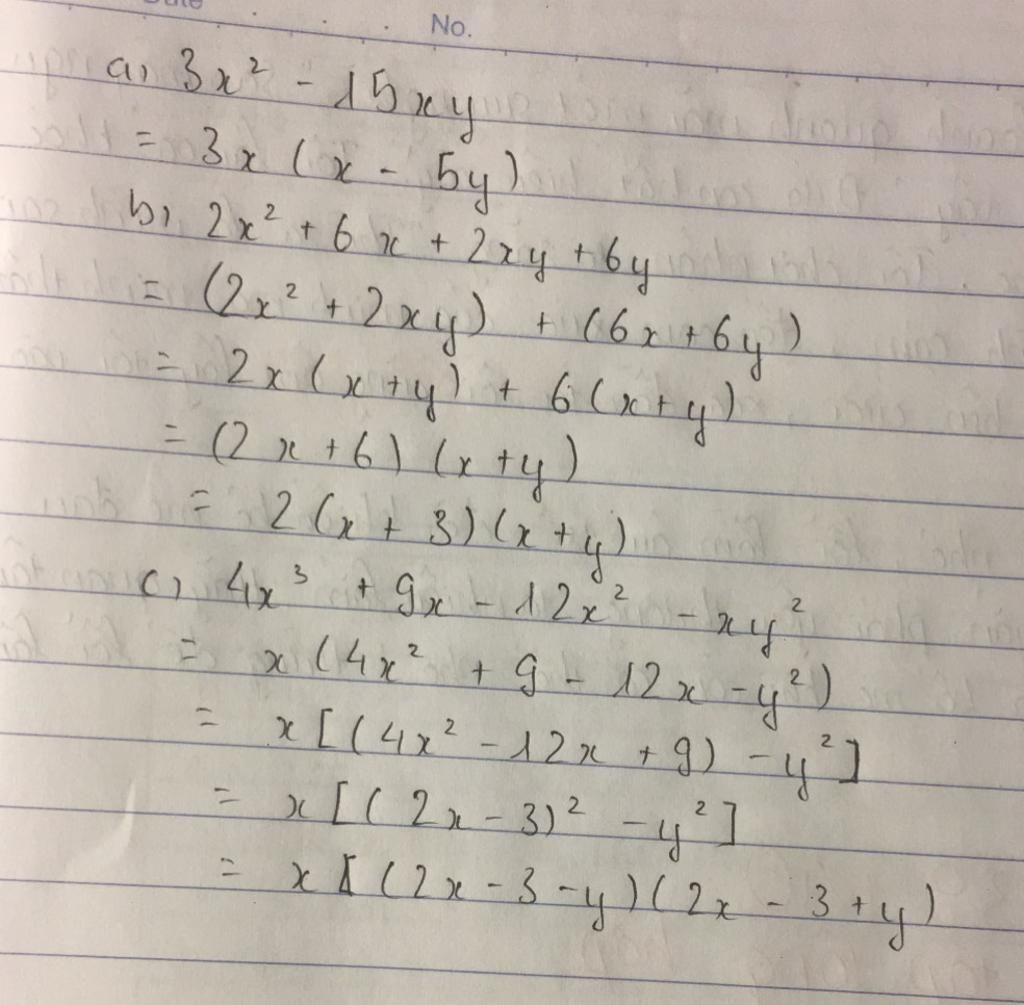 No.
a, 3x² - 15xy
= 3x (x - 5y)
b, 2x² + 6x + 2xy + 6y
= (2x² + 2xy) + (6x + 6y)
= 2x (x + y) + 6 (x + y)
= (2x + 6) (x + y)
= 2 (x + 3) (x + y)
c, 4x³ + 9x - 12x² - xy²
= x (4x² + 9 - 12x - y²)
= x [(4x² - 12x + 9) - y²]
= x [(2x - 3)² - y²]
= x [(2x - 3 - y) (2x - 3 + y)